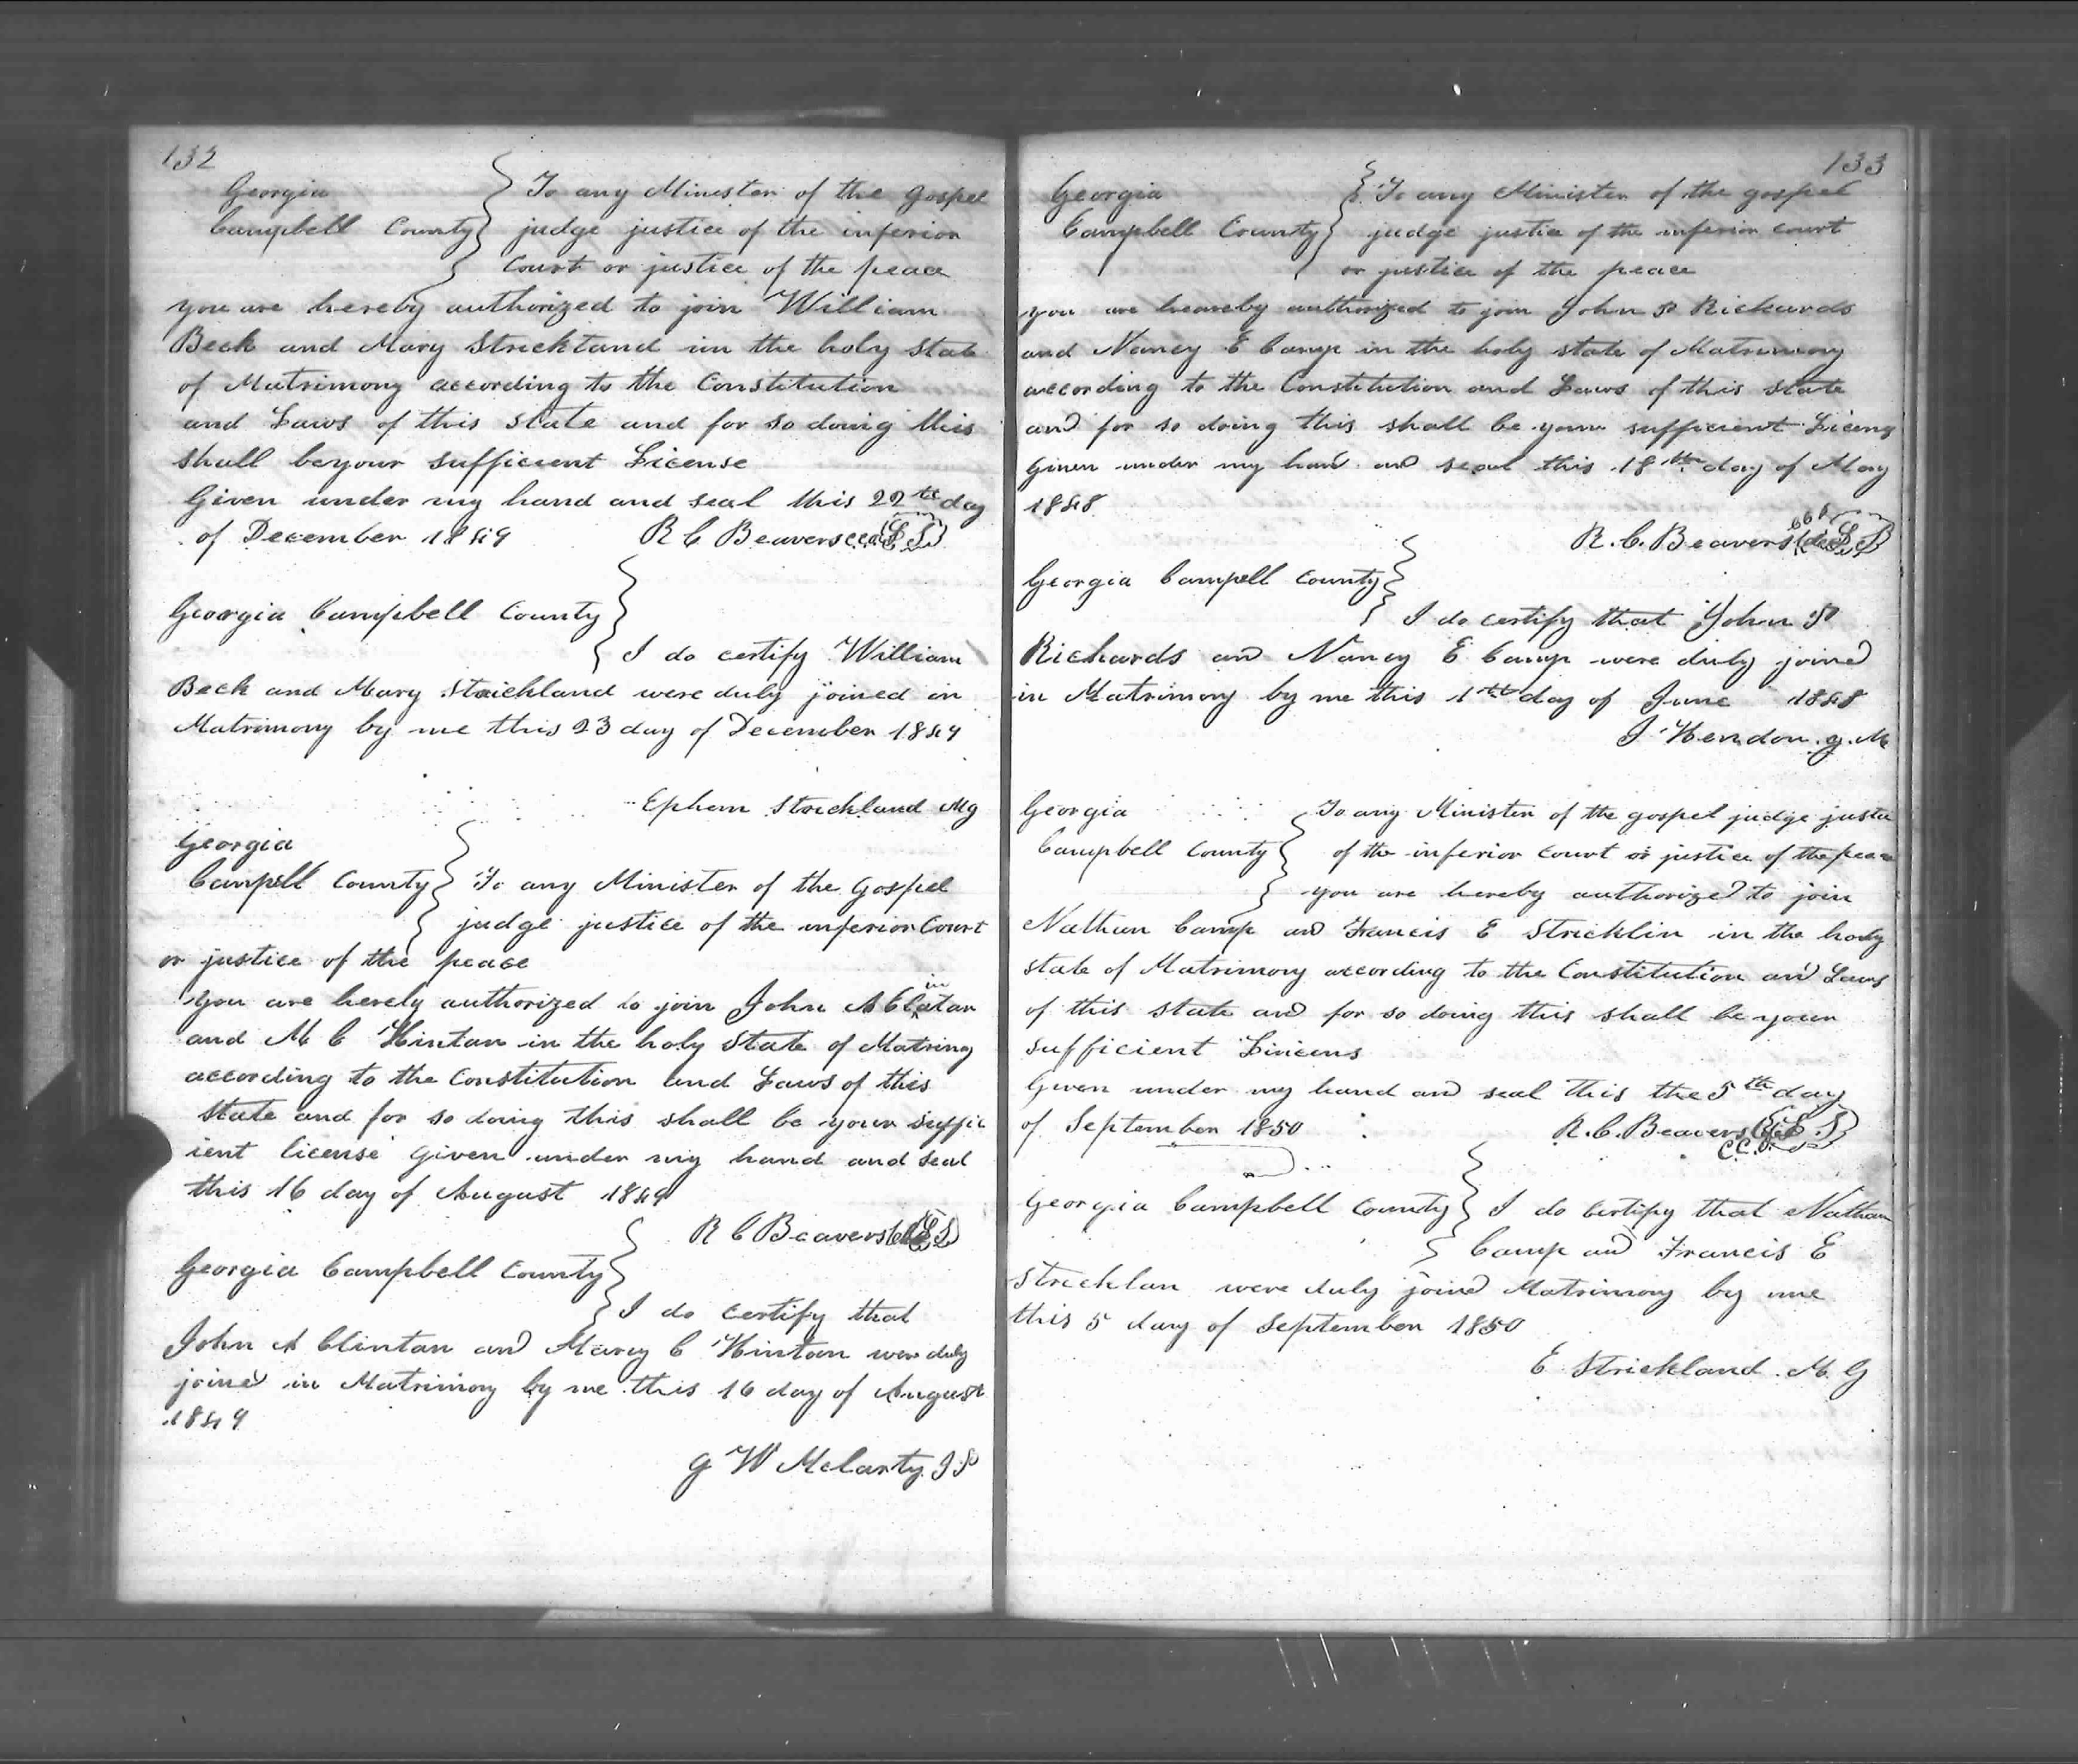 132
Georgia
Campbell County
To any Minister of the gospel
judge justice of the inferior
Court or justice of the peace
you are hereby authorized to join William
Beck and Mary Strickland in the holy state
of Matrimony according to the Constitution
and Laws of this state and for so doing this
shall be your sufficient License
Given under my hand and seal this 22th day
of December 1849 R C Beavers cco L S
Georgia Campbell County
I do certify William
Beck and Mary Strickland were duly joined in
Matrimony by me this 23 day of December 1849
Ephem Strickland Mg
Georgia
Campell County To any Minister of the Gospel
judge justice of the inferior Court
or justice of the peace
You are herely authorized to join John A Clintan
and M C Hintan in the holy State of Matrimy
according to the Constitution and Laws of this
state and for so doing this shall be your suffic
ient license given under my hand and seal
this 16 day of August 1849
R C Beavers L S
Georgia Campbell County
I do certify that
John A Clintan and Marcy C Hintan were duly
joined in Matrimony by me this 16 day of August
1849
G W Mclarty J P
133
Georgia
Campbell County
To any Minister of the gospel
judge justice of the inferior court
or justice of the peace
you are heareby authorized to join John P Richards
and Nancy E Camp in the holy state of Matrimony
according to the Constitution and Laws of this state
and for so doing this shall be your sufficient Licens
Given under my hand and seal this 18th day of May
1848
R. C. Beavers L S
Georgia Campell County
I do certify that John P
Richards and Nancy E Camp were duly joined
in Matrimony by me this 1th day of June 1848
J Hendon. g. M
Georgia
Campbell County
To any Minister of the gospel judge justice
of the inferior Court or justice of the peace
you are hereby authorized to join
Nathan Camp and Francis E Stricklin in the holy
state of Matrimony according to the Constitution and Laws
of this state and for so doing this shall be your
sufficient Linicens
Given under my hand and seal this the 5th day
of September 1850 R. C. Beavers L. S
C.C.O.
Georgia Campbell County I do certify that Nathan
Camp and Francis E
Stricklan were duly joined Matrimony by me
this 5 day of September 1850
E Strickland. M. G